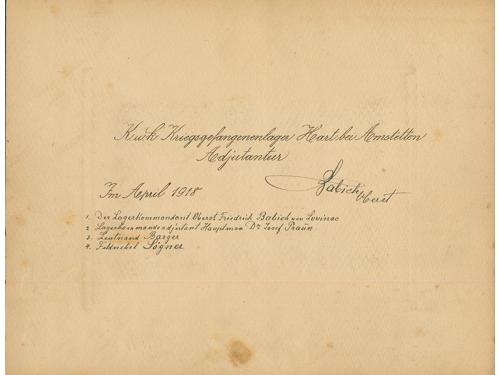 K.u.k. Kriegsgefangenenlager Hart bei Amstetten
Adjutantur
Babich Oberst
Im April 1918
1. Der Lagerkommandant Oberst Friedrich Babich von Lovinac
2. Lagerkommandoadjutant Hauptmann Dr Josef Praun
3. Leutnand Barger
4. Feldwebel Sögner